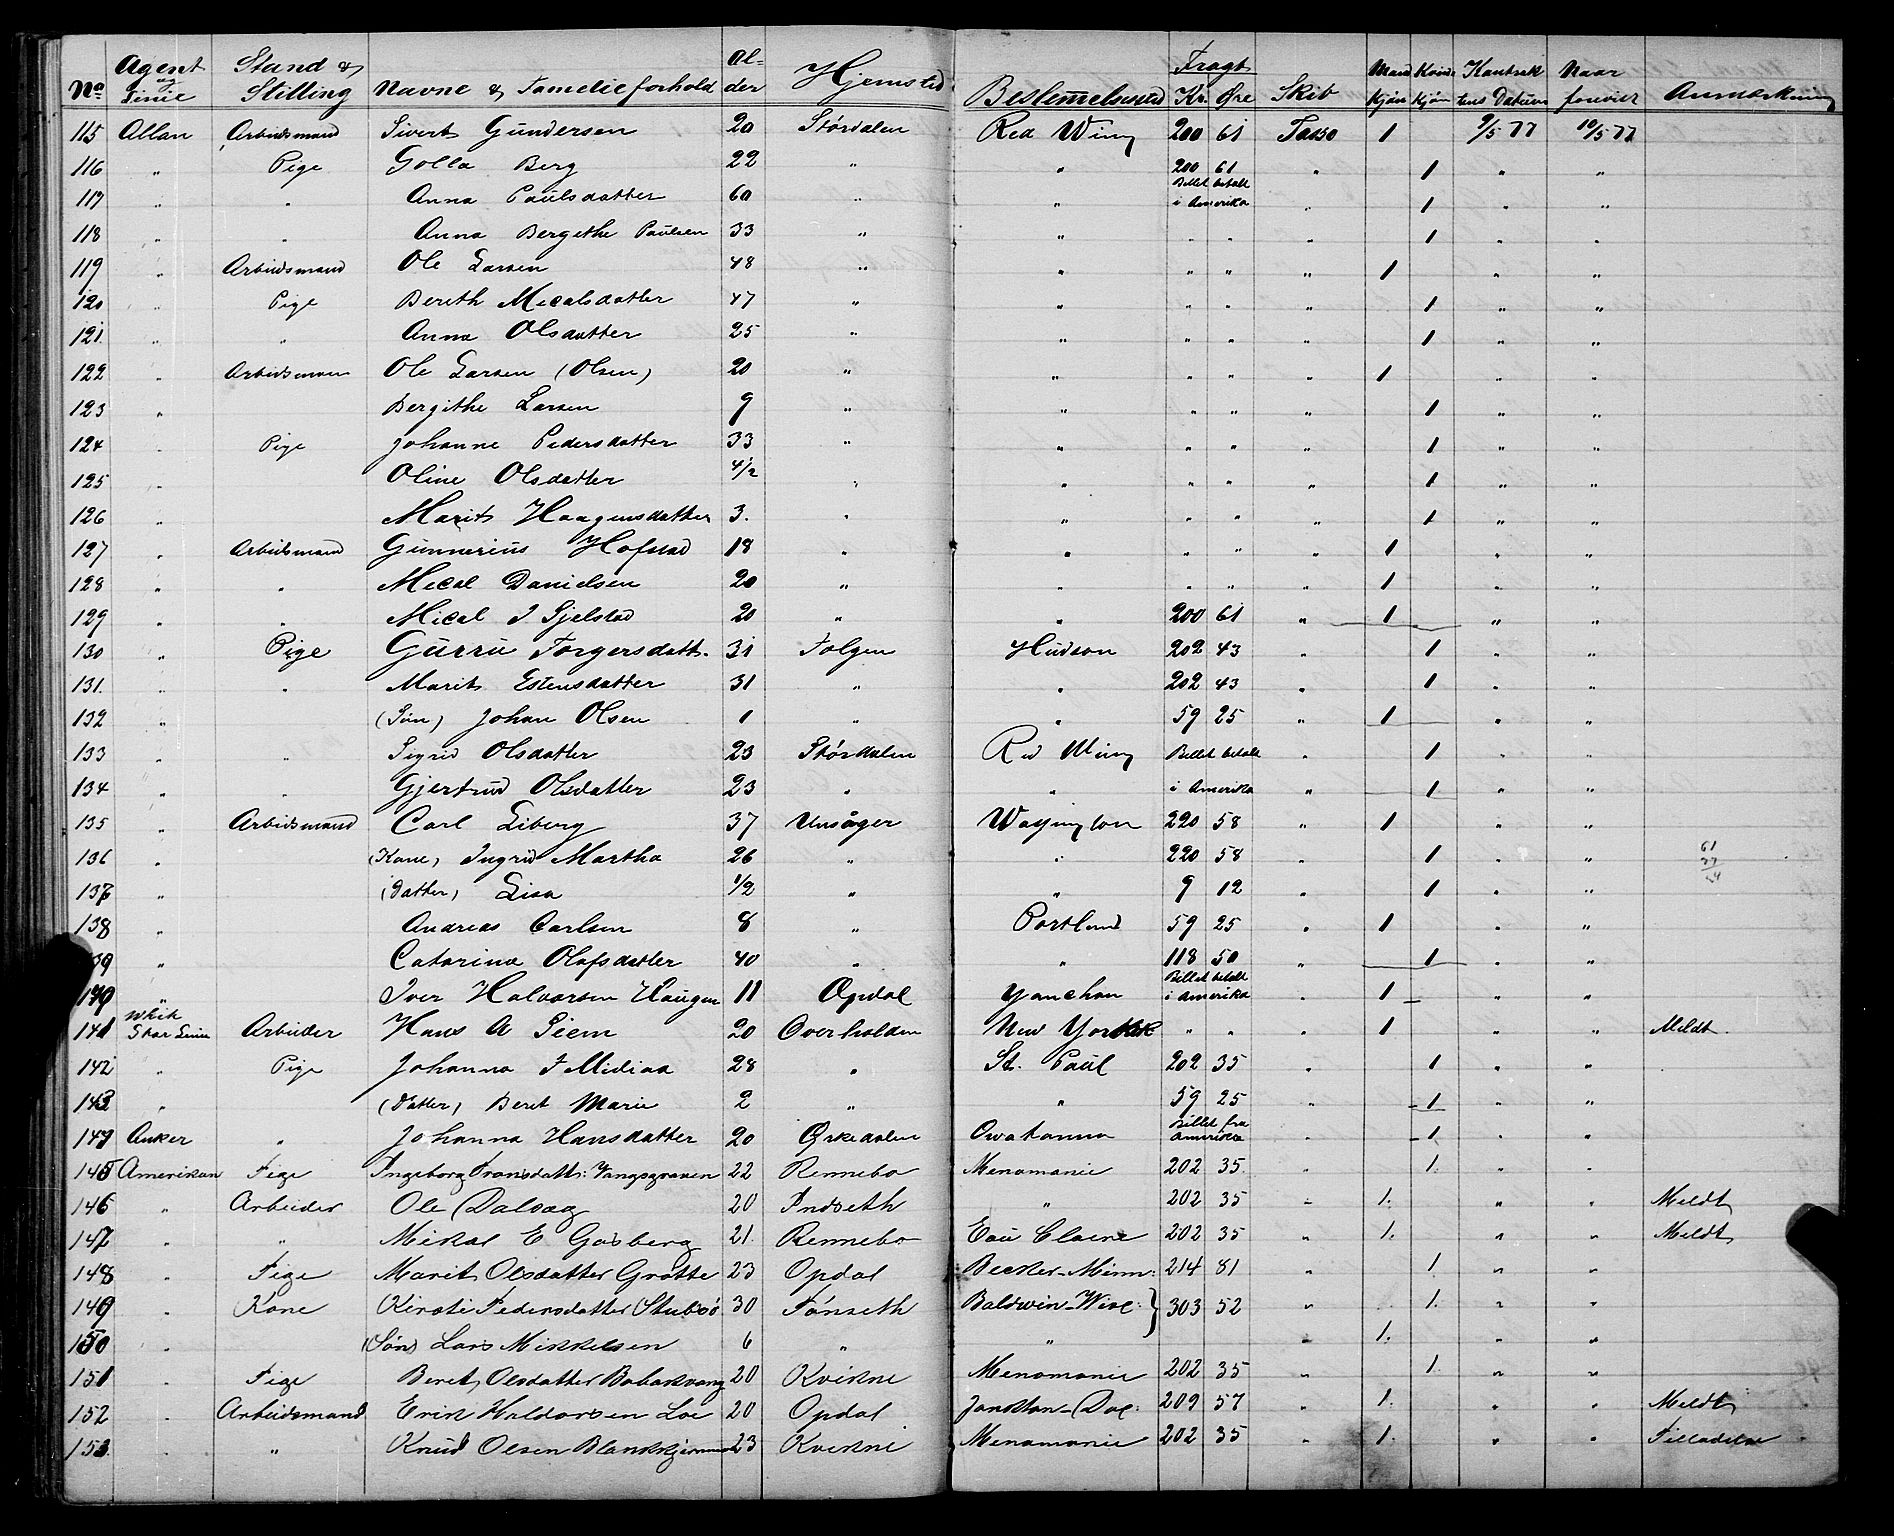 No Agent og Linie Stand & Stilling Navne & Familieforhold Alder Hjemsted Bestemmelsessted Fragt Kr. Øre Skib Mand kjøn Kvinde kjøn Kontrak tens Datum Naar forevist Anmærkning
115 Allan Arbeidsmand Sivert Gundersen 20 Størdalen Red Wing 200 61 Tasso 1 9/5 77 10/5 77
116 " Pige Golla Berg 22 " " 200 61 " 1 " "
117 " " Anna Paulsdatter 60 " " Billet betalt i Amerika " 1 " "
118 " " Anna Bergethe Paulsen 33 " " " " " 1 " "
119 " Arbeidsmand Ole Larsen 48 " " " " " 1 " "
120 " Pige Bereth Micalsdatter 47 " " " " " 1 " "
121 " " Anna Olsdatter 25 " " " " " 1 " "
122 " Arbeidsmann Ole Larsen (Olsen) 20 " " " " " 1 " "
123 " Bergithe Larsen 9 " " " " " 1 " "
124 " Pige Johanne Pedersdatter 33 " " " " " 1 " "
125 " Oline Olsdatter 4 1/2 " " " " " 1 " "
126 " Marit Haagensdatter 3. " " " " " 1 " "
127 " Arbeidsmand Gunnerius Hofstad 18 " " " " " 1 " "
128 " " Mical Danielsen 20 " " " " " 1 " "
129 " " Mical J Gjelstad 20 " " 200 61 " 1 " "
130 " Pige Gurru Torgersdatt. 31 Tolgen Hudson 202 43 " 1 " "
131. " " Marit Estensdatter 31 " " 202 43 " 1 " "
132 " (Søn) Johan Olsen 1 " " 59 25 " 1 " "
133 " " Sigrid Olsdatter 23 Størdalen Red Wing Billet betalt " 1 " "
134 " " Gjertrud Olsdatter 23 " " i Amerika " 1 " "
135 " Arbeidsmand Carl Liberg 37 Undsåger Wasington 220 58 " 1 " "
136 " (Kone) Ingrid Martha 26 " " 220 58 " 1 " "
137 " (Datter) Lisa 1/2 " " 9 12 " 1 " "
138 " Andreas Carlsen 8 " Portland 59 25 " 1 " "
139 " Catarina Olafsdatter 40 " " 118 50 " 1 " "
140 " Iver Halvorsen Haugen 11 Opdal Yanchon Billet betalt i Amerika " 1 " "
141 White Star Linie Arbeider Hans A Siem 20 Overhalden New York " " " 1 " " Meldt
142 " Pige Johanna F Midiaa 28 " St. Paul 202 35 " 1 " "
143 " (Datter) Beret Marie 2 " " 59 25 " 1 " "
144 Anker " Johanna Hansdatter 20 Ørkedalen Owatanna Billet fra Amerika " 1 " "
145 Amerikan Pige Ingeborg Tronsdatt: Vangsgraven 22 Rennebo Menomonie 202 35. " 1. " "
146 " Arbeider Ole Dalsag 20 Indseth " 202 35 " 1. " " Meldt
147 " " Mikal E Gosberg 21. Rennebo Eau Claire 202 35 " 1. " " Meldt
148 " Pige Marit Olsdatter Grøtte 23 Opdal Becker-Minn: 214 81 " 1 " "
149 " Kone Kirsti Pedersdatter Stubsø 30 Tønseth Baldwin-Wisc: } 303 52 " 1. " "
150 " (Søn) Lars Mikkelsen 6 " " " 1. " "
151 " Pige Beret Olsdatter Bubakvang 20 Kvikne Menomonie 202 35 " 1. " "
152 " Arbeidsmand Erik Haldorsen Loe 20 Opdal Jankton-Dac: 209 57 " 1. " " Meldt
153. " " Knud Olsen 23 Kvikne Menomonie 202 35 " 1. " "